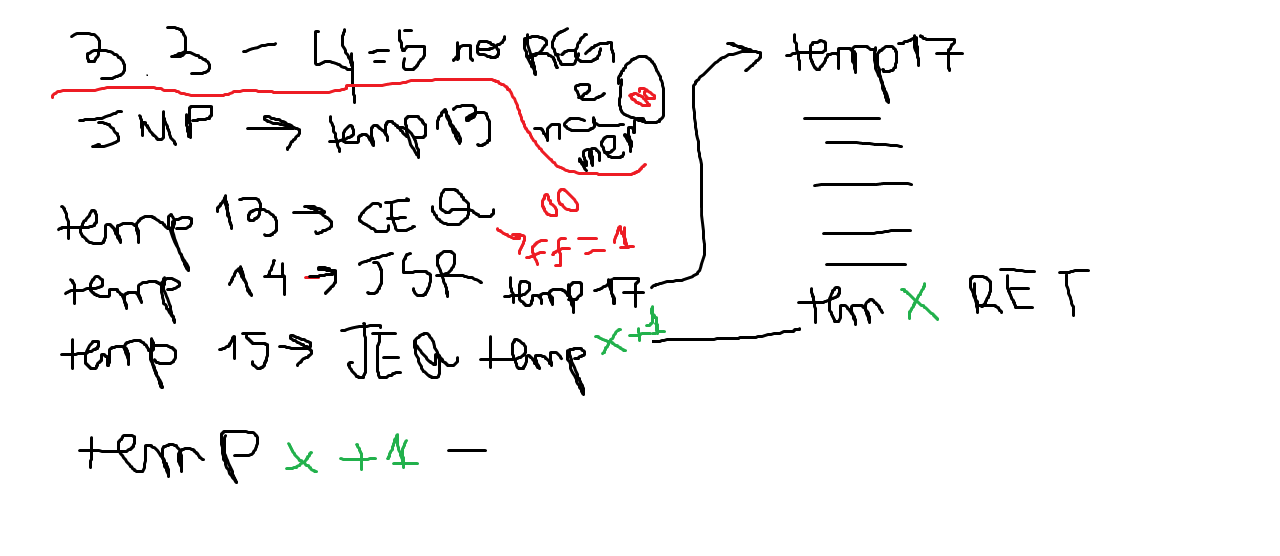 3 3 - 4 = 5 no REG
e 00
JMP → temp 13 na
mer
temp 13 → CEQ 00
→ ff = 1
temp 14 → JSR temp 17
temp 15 → JEQ temp x+1
temp x+1 -
temp 17
tem X RET